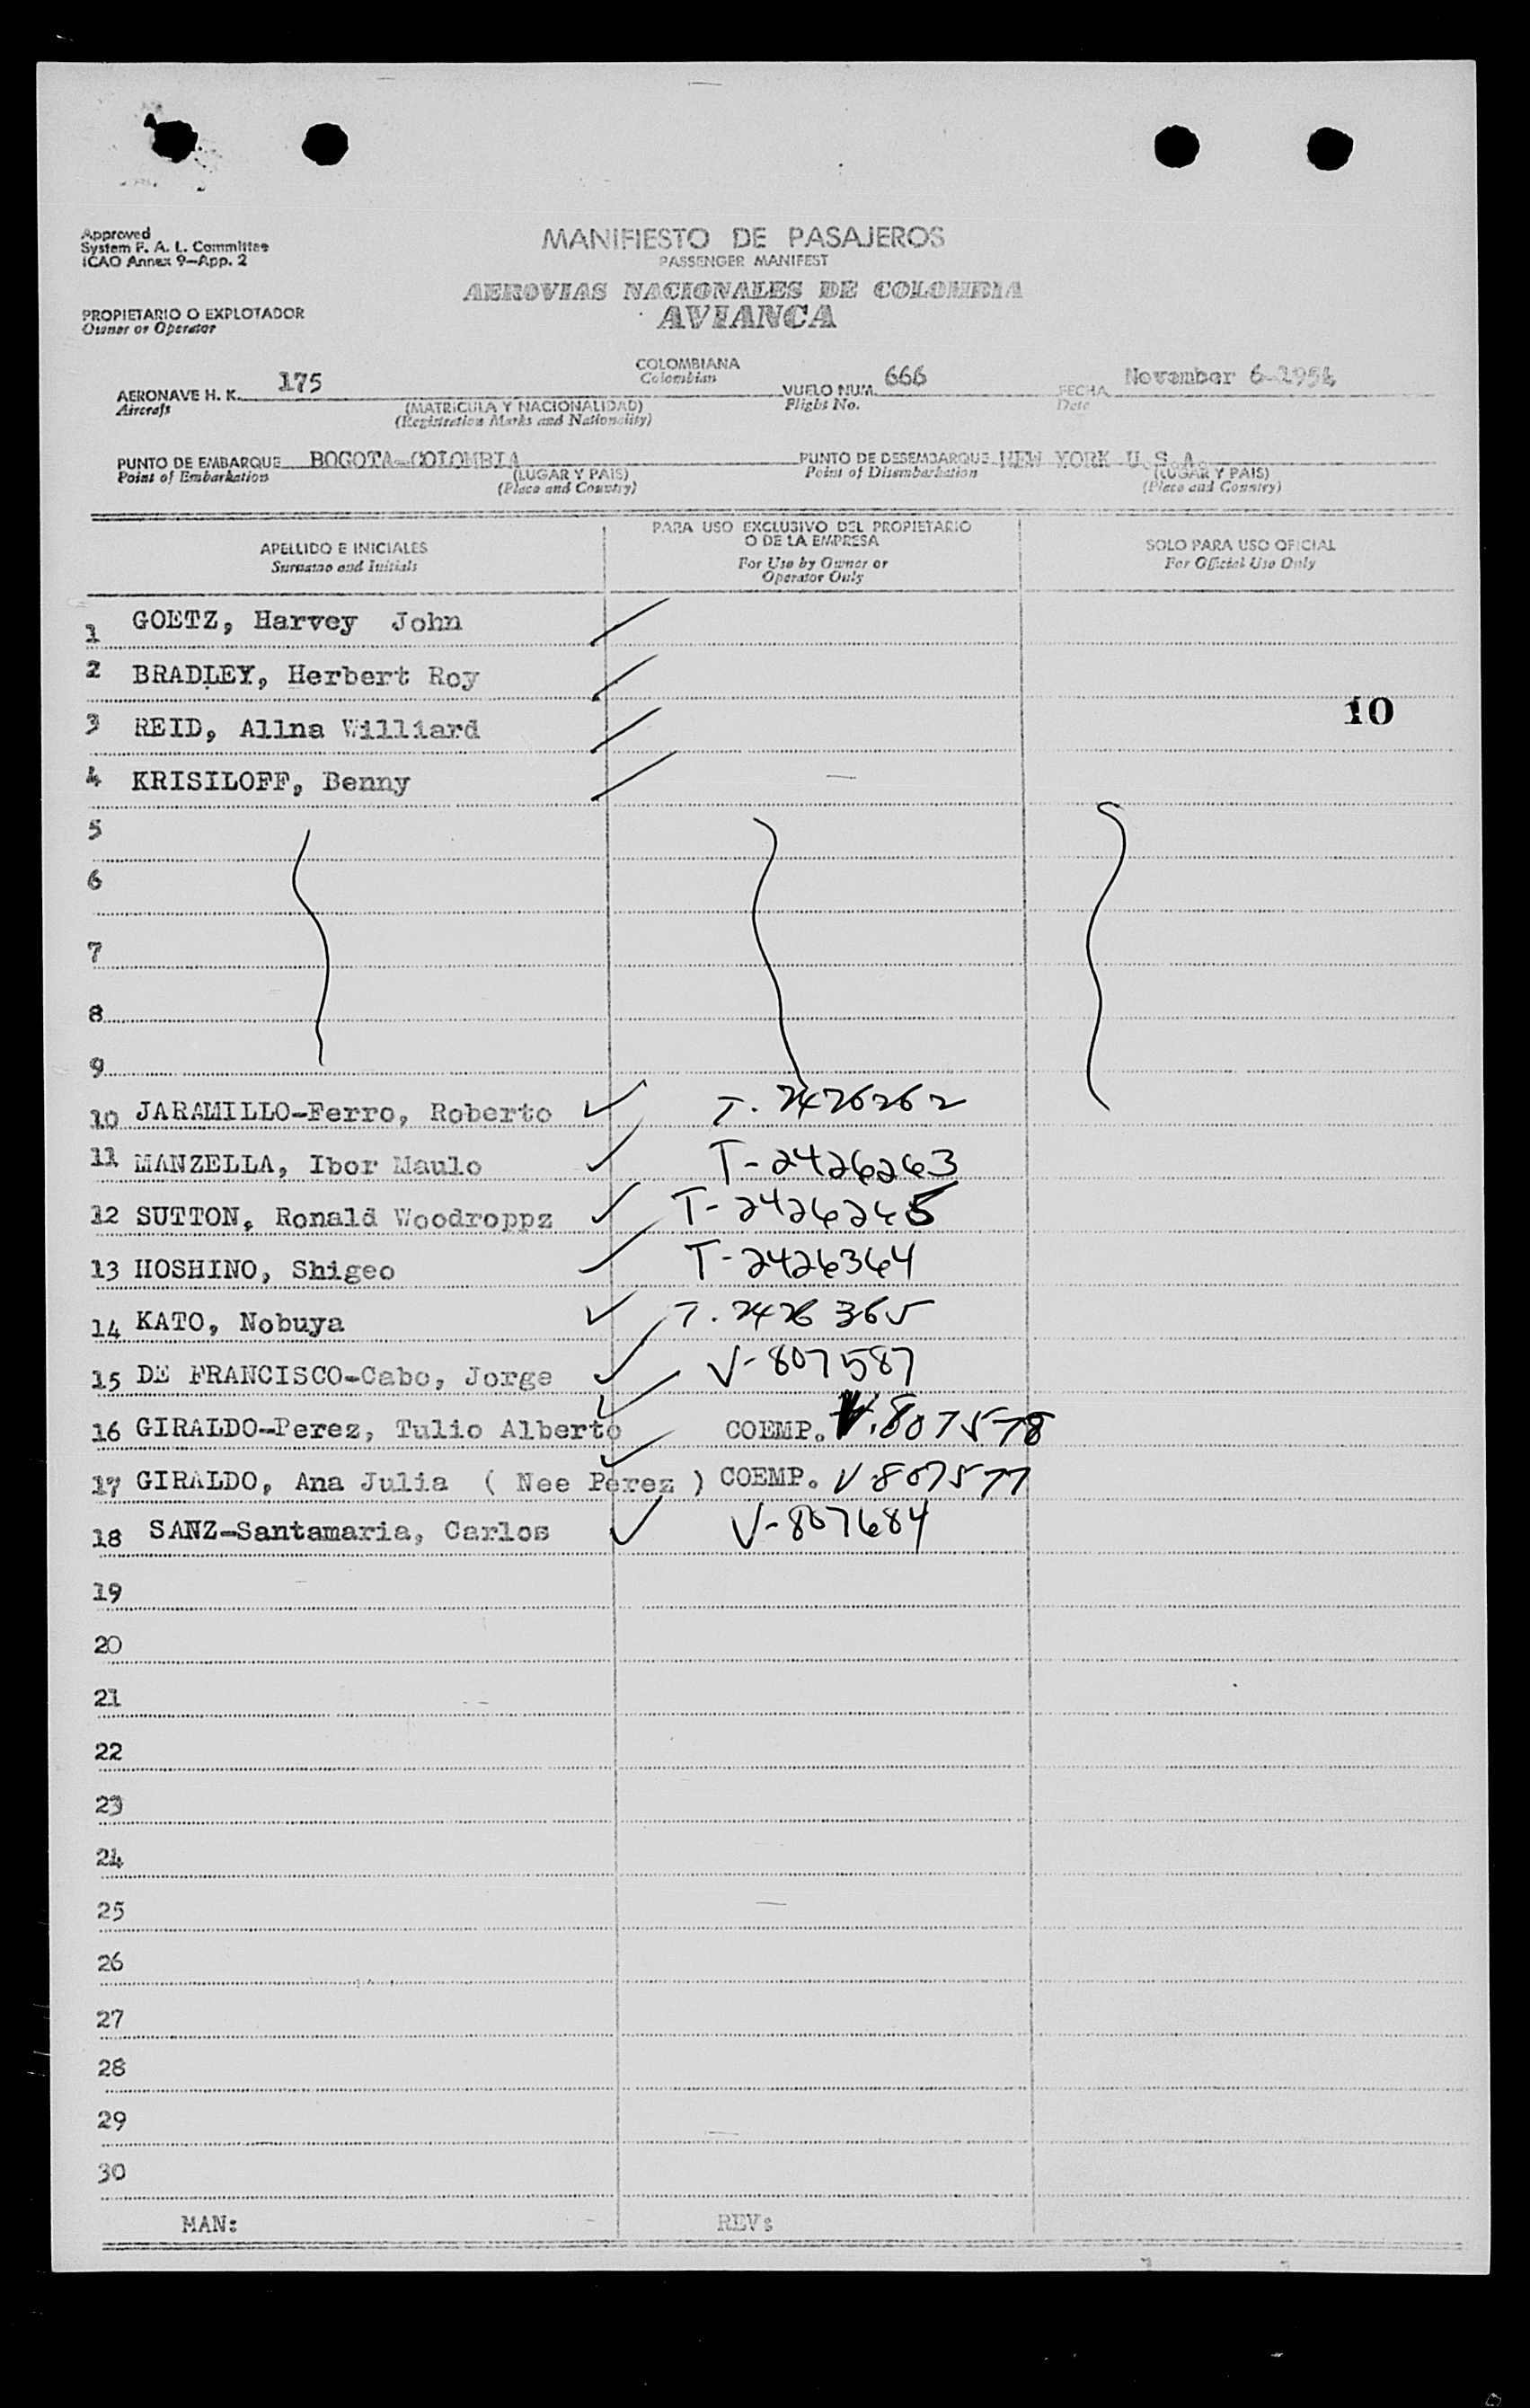 Approved
System F. A. L. Committee
ICAO Annex 9-App. 2
MANIFIESTO DE PASAJEROS
PASSENGER MANIFEST
AEROVIAS NACIONALES DE COLOMBIA
AVIANCA
PROPIETARIO O EXPLOTADOR
Owner or Operator
AERONAVE H. K. 175 COLOMBIANA VUELO NUM. 666 FECHA November 6-1954
Aircraft Colombian Flight No. Date
(MATRICULA Y NACIONALIDAD)
(Registration Marks and Nationality)
PUNTO DE EMBARQUE BOGOTA-COLOMBIA PUNTO DE DESEMBARQUE NEW YORK U.S.A.
Point of Embarkation (LUGAR Y PAIS) Point of Disembarkation (LUGAR Y PAIS)
(Place and Country) (Place and Country)
APELLIDO E INICIALES
Surname and Initials
PARA USO EXCLUSIVO DEL PROPIETARIO
O DE LA EMPRESA
For Use by Owner or
Operator Only
SOLO PARA USO OFICIAL
For Official Use Only
1 GOETZ, Harvey John
2 BRADLEY, Herbert Roy
3 REID, Allna Williard 10
4 KRISILOFF, Benny
5
6
7
8
9
10 JARAMILLO-Ferro, Roberto T. 2426262
11 MANZELLA, Ibor Maulo T-2426263
12 SUTTON, Ronald Woodroppz T-2426245
13 HOSHINO, Shigeo T-2426364
14 KATO, Nobuya T. 2426365
15 DE FRANCISCO-Cabo, Jorge V-807587
16 GIRALDO-Perez, Tulio Alberto COEMP. V.807578
17 GIRALDO, Ana Julia ( Nee Perez ) COEMP. V.807577
18 SANZ-Santamaria, Carlos V-807684
19
20
21
22
23
24
25
26
27
28
29
30
MAN: REV: